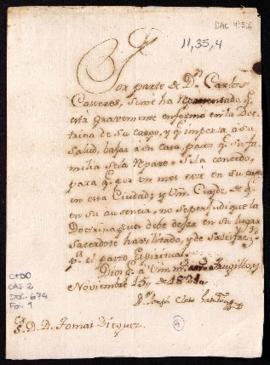 DAC 4356
11,35,4
Por parte de Dn Carlos
Casseres, se me ha representado q.e
está gravemente enfermo en la Doc-
trina de su cargo, y q.e importa a su
salud, bajar a su casa para q.e su fa-
milia se la repare: Se la concedo,
para q.e en un mes este en su casa
en esta Ciudad, y Vm. Cuide de q.e
en su ausencia, no se perjudique la
Doctrina, pues debe dejar en su lugar
Sacerdote havilitado, y de satisfac.n
p.a el pasto Espiritual.
Dios gue. a Vm m.s a.s Truxillo, y
Noviembre 15, de
S. D. D. Tomas Dieguez
CTDO
CAS 2
DOC. 674
Fol. 1